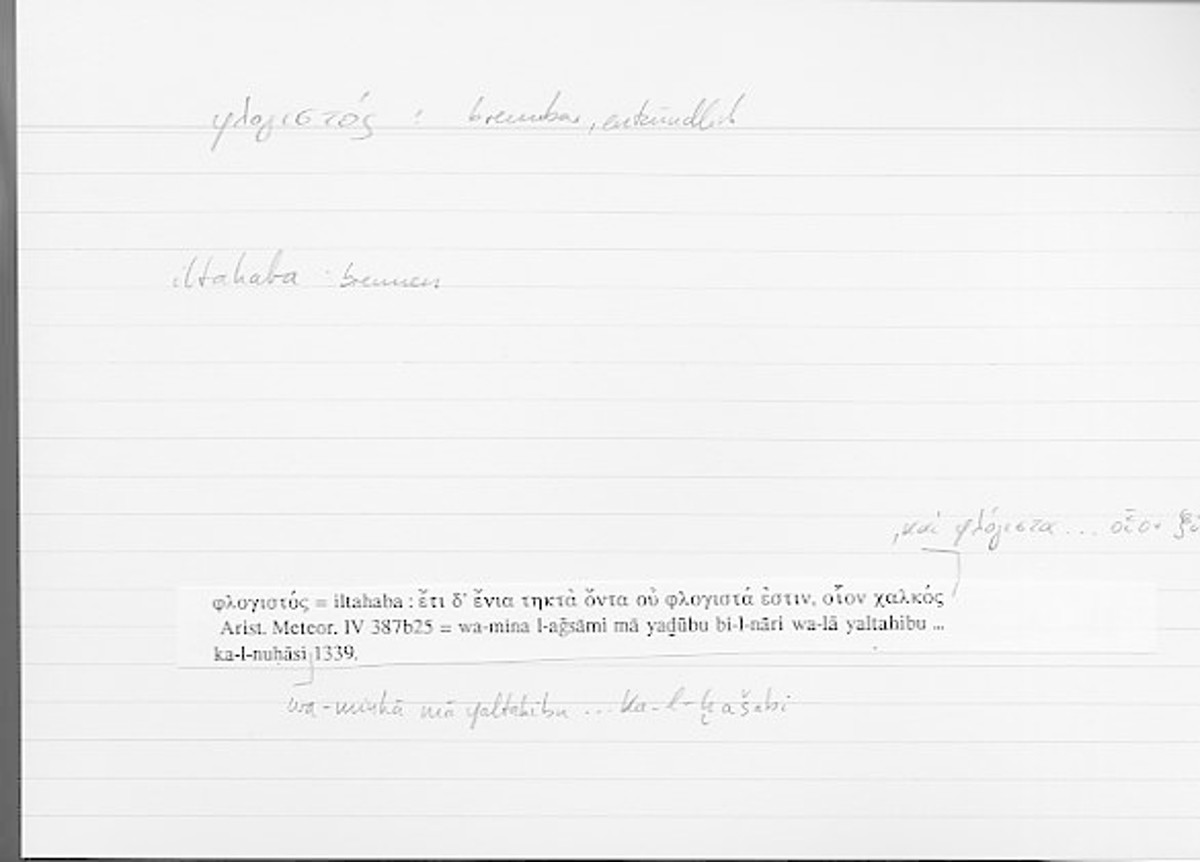 φλογιστός : brennbar, entzündlich
iltahaba : brennen
, καὶ φλόγιστα ... οἷον
φλογιστός = iltahaba : ἔτι δ' ἔνια τηκτὰ ὄντα οὐ φλογιστά ἐστιν, οἷον χαλκός
Arist. Meteor. IV 387b25 = wa-mina l-aǧsāmi mā yaḏūbu bi-l-nāri wa-lā yaltahibu ...
ka-l-nuḥāsi 1339.
wa-minhā mā yaltahibu ... ka-l-ḫašabi